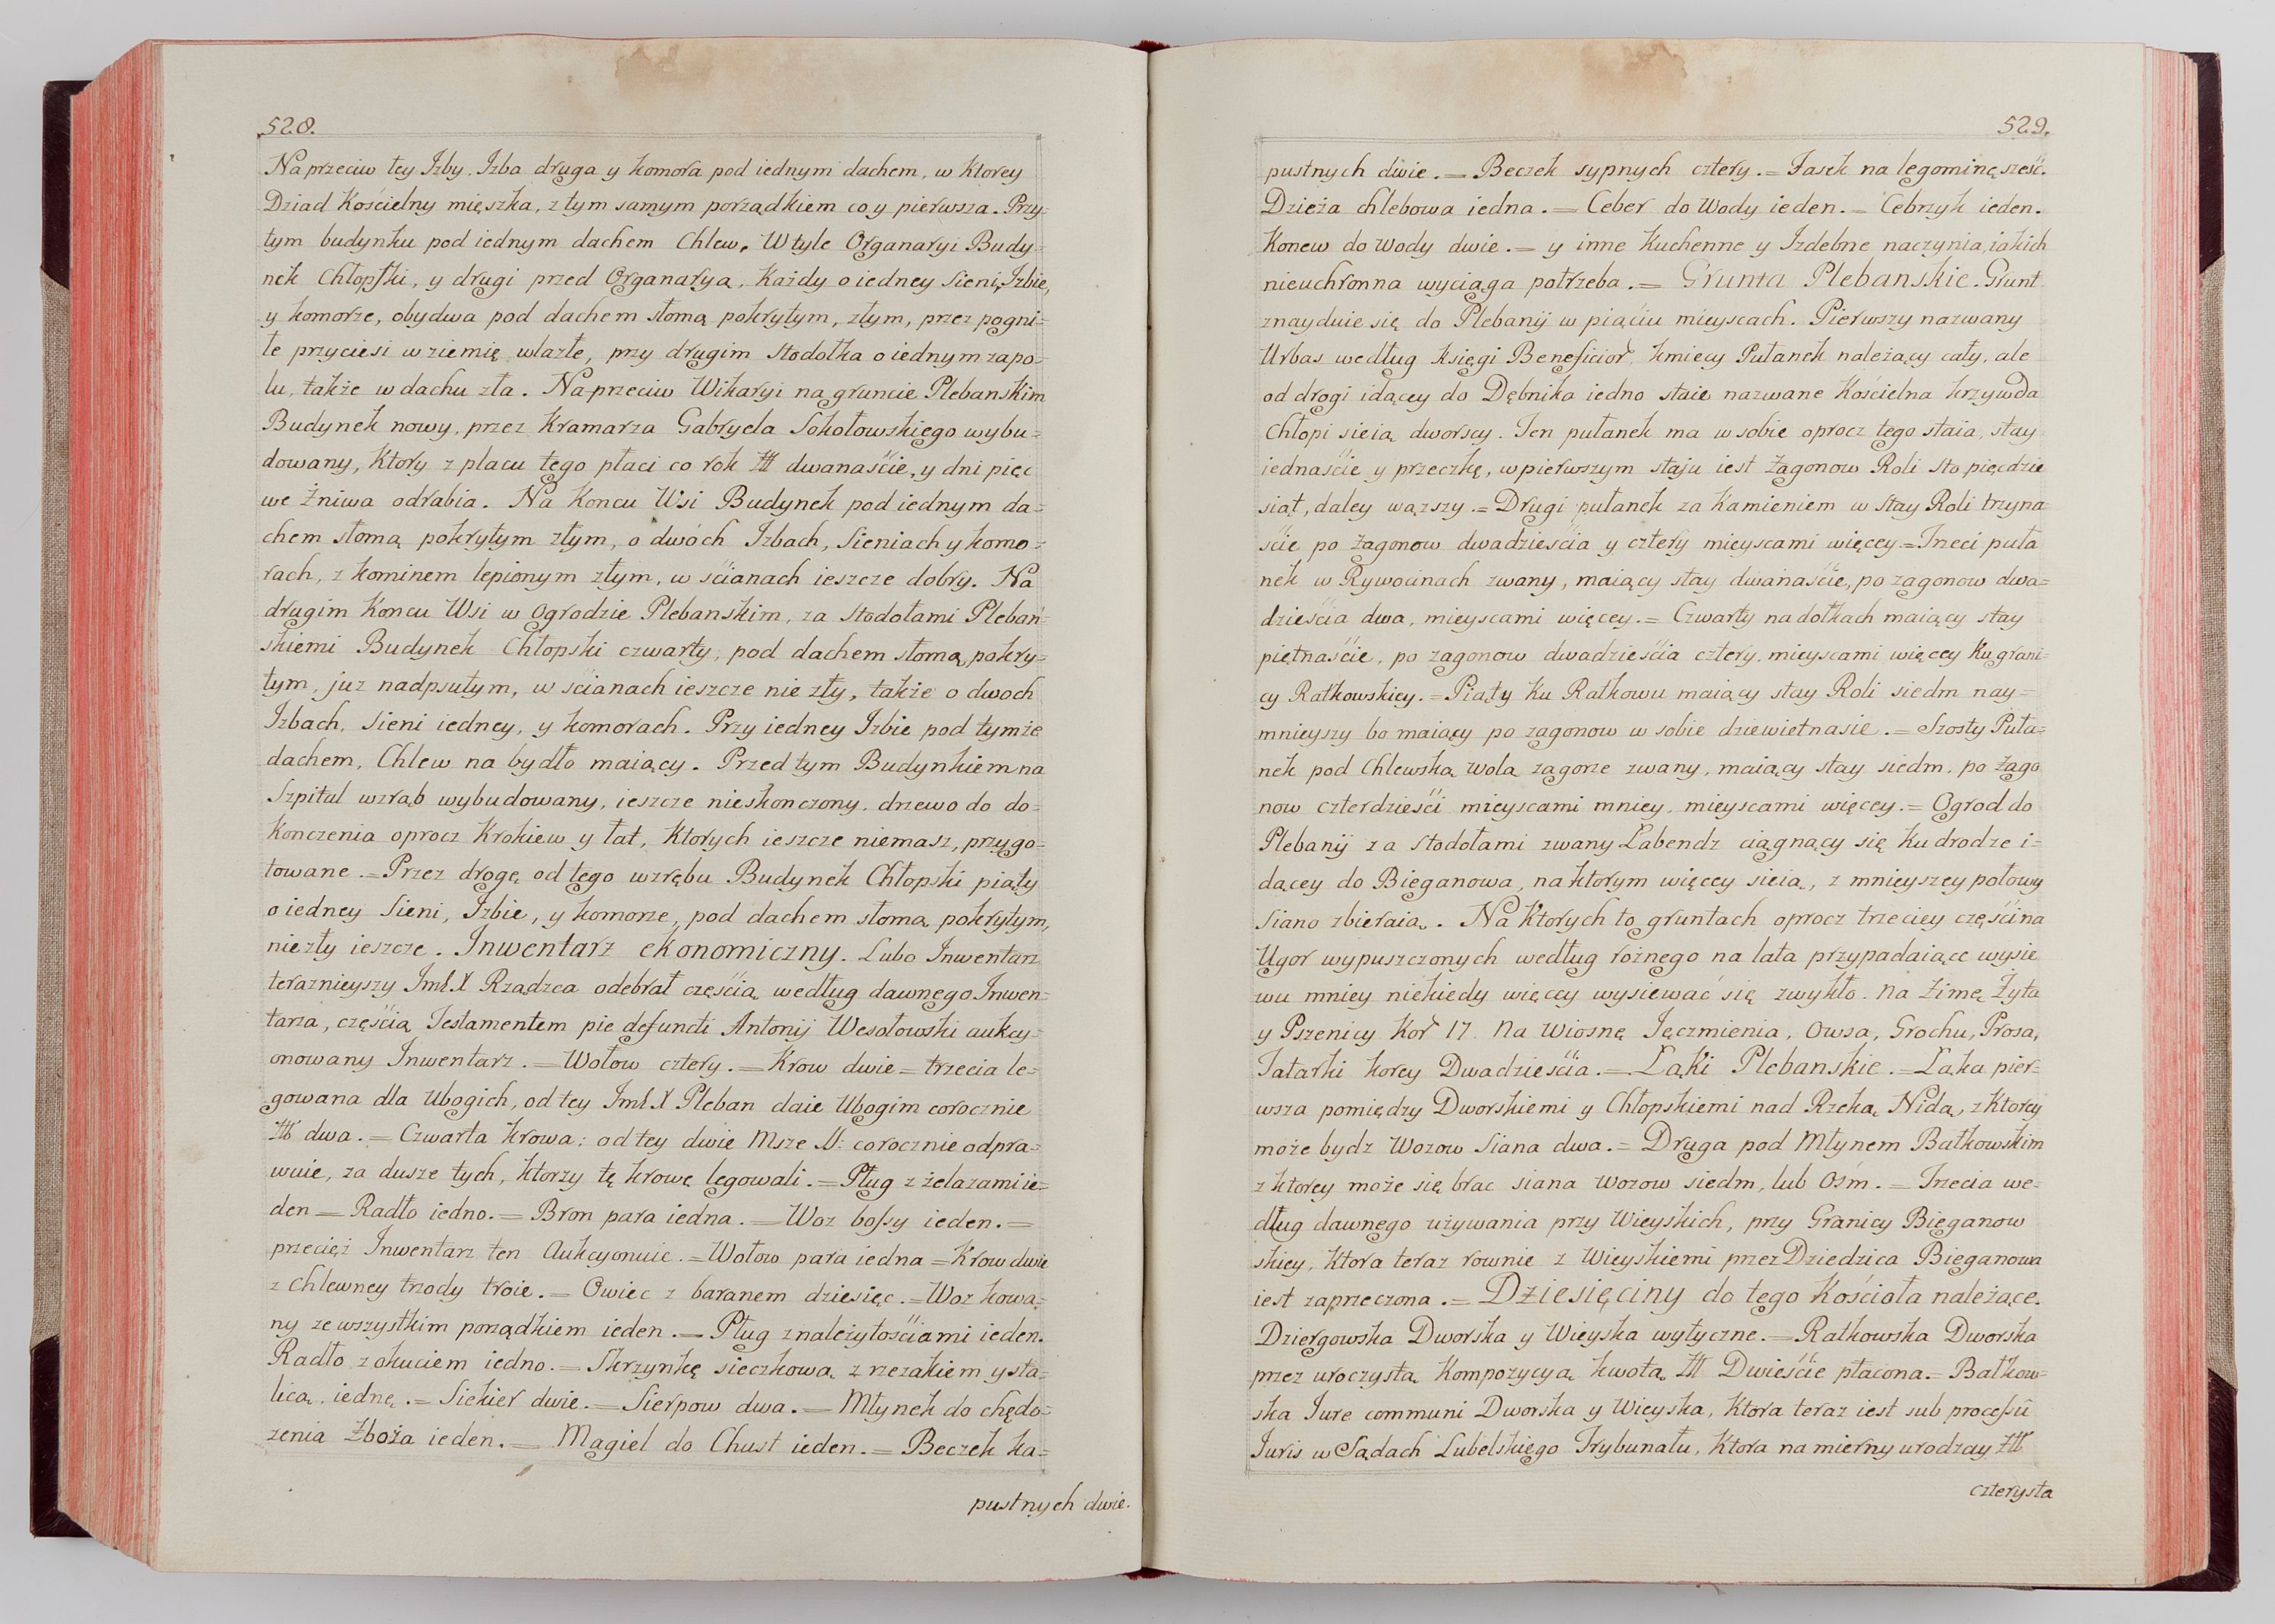 528.
Na przeciw tey Izby, Izba druga y komora pod iednym dachem, w ktorey
Dziad Kościelny mięszka, z tym samym porządkiem co y pierwsza. Przy-
tym budynku pod iednym dachem Chlew. W tyle Organaryi Budy-
nek Chłopski, y drugi przed Organarya, Każdy o iedney Sieni, Izbie,
y komorze, obydwa pod dachem słomą pokrytym, złym, przez pogni-
łe przyciesi w ziemię wlazłe, przy drugim stodołka o iednym zapo-
lu, także w dachu zła. Naprzeciw Wikaryi na gruncie Plebanskim
Budynek nowy, przez Kramarza Gabryela Sokołowskiego wybu-
dowany, Ktory z placu tego płaci co rok tll dwanaście, y dni pięc
we Żniwa odrabia. Na Koncu Wsi Budynek pod iednym da-
chem słomą pokrytym złym, o dwóch Izbach, Sieniach y komo-
rach, z kominem lepionym złym, w ścianach ieszcze dobry. Na
drugim Koncu Wsi w Ogrodzie Plebanskim, za Stodołami Plebań-
skiemi Budynek Chłopski czwarty, pod dachem słomą pokry-
tym, juz nadpsutym, w ścianach ieszcze nie zły, także o dwoch
Izbach, Sieni iedney, y komorach. Przy iedney Izbie pod tymże
dachem, Chlew na bydło maiący. Przed tym Budynkiem na
Szpital wzrąb wybudowany, ieszcze nieskonczony, drzewo do do-
Konczenia oprocz Krokiew y łat, Ktorych ieszcze niemasz, przygo-
towane. = Przez drogę od tego wzrębu Budynek Chłopski piąty
o iedney Sieni, Izbie, y komorze, pod dachem słomą pokrytym,
niezły ieszcze. Inwentarz ekonomiczny. Lubo Inwentarz
teraznieyszy ImX Rządzca odebrał częścią według dawnego Inwen-
tarza, częścią Testamentem pie defuncti Antonij Wesołowski aukcy-
onowany Inwentarz. = Wołow cztery. = Krow dwie = trzecia le-
gowana dla Ubogich, od tey ImX Pleban daie Ubogim corocznie
tll dwa. = Czwarta krowa: od tey dwie Msze S: corocznie odpra-
wuie, za dusze tych, ktorzy tę krowę legowali. = Pług z żelazami ie-
den = Radło iedno. = Bron para iedna. = Woz bosy ieden. =
przecięż Inwentarz ten Aukcyonuie. = Wołow para iedna = Krow dwie
z Chlewney trzody troie. = Owiec z baranem dziesięc. = Woz kowa-
ny ze wszystkim porządkiem ieden. = Pług z należytościami ieden.
Radło z okuciem iedno. = Skrzynkę sieczkową z rzezakiem y sta-
licą, iednę. = Siekier dwie. = Sierpow dwa. = Młynek do chędo-
żenia Zboża ieden. = Magiel do Chust ieden. = Beczek ka-
pustnych dwie.
529.
pustnych dwie. = Beczek sypnych cztery. = Fasek na legominę sześć.
Dzieża chlebowa iedna. = Ceber do Wody ieden. = Cebrzyk ieden.
Konew do Wody dwie. = y inne Kuchenne y Izdebne naczynia, iakich
nieuchronna wyciąga potrzeba. = Grunta Plebanskie. Grunt
znayduie się do Plebanij w piąciu mieyscach. Pierwszy nazwany
Urbas według księgi Beneficior, kmiecy Pułanek należący cały, ale
od drogi idącey do Dębnika iedno staie nazwane Kościelna krzywda
Chłopi sieią dworscy. Ten pułanek ma w sobie oprocz tego staia, stay
iednaście y przeczkę, w pierwszym staju iest Zagonow Roli Sto pięcdzie
siąt, daley wązszy. = Drugi pułanek za Kamieniem w Stay Roli trzyna-
ście po Zagonow dwadzieścia y cztery mieyscami więcey. = Trzeci puła
nek w Rywocinach zwany, maiący stay dwanaście, po zagonow dwa-
dzieścia dwa, mieyscami więcey. = Czwarty na dołkach maiący stay
piętnaście, po zagonow dwadzieścia cztery, mieyscami więcey Ku grani-
cy Ratkowskiey. = Piąty Ku Ratkowu maiący stay Roli siedm nay-
mnieyszy bo maiący po zagonow w sobie dziewietnasie. = Szosty Puła-
nek pod Chlewską Wolą zagorze zwany, maiący stay siedm, po Zago
now czterdzieści mieyscami mniey, mieyscami więcey. = Ogrod do
Plebanij za Stodołami zwany Łabendz ciągnący się Ku drodze i-
dącey do Bieganowa, na ktorym więcey sieią, z mnieyszey połowy
Siano zbieraią. Na Ktorych to gruntach oprocz trzeciey części na
Ugor wypuszczonych według rożnego na lata przypadaiące wysie
wu mniey niekiedy więcey wysiewać się zwykło. Na Zimę Żyta
y Pszenicy Kor 17. Na Wiosnę Jęczmienia, Owsa, Grochu, Prosa,
Tatarki korcy Dwadzieścia. = Łąki Plebanskie. = Łąka pier-
wsza pomiędzy Dworskiemi y Chłopskiemi nad Rzeką Nidą, z Ktorey
może bydz Wozow Siana dwa. = Druga pod Młynem Bałkowskim
z ktorey może się brac siana Wozow siedm, lub Ośm. = Trzecia we-
dług dawnego używania przy Wieyskich, przy Granicy Bieganow
skiey, Ktora teraz rownie z Wieyskiemi przez Dziedzica Bieganowa
iest zaprzeczona. = Dziesięciny do tego Kościoła należące.
Dziergowska Dworska y Wieyska wytyczne. = Ratkowska Dworska
przez uroczystą Kompozycyą kwotą tll Dwieście płacona. = Bałkow-
ska Iure communi Dworska y Wieyska, Ktora teraz iest sub processu
Iuris w Sądach Lubelskiego Trybunału, Ktora na mierny urodzay tll
czterysta